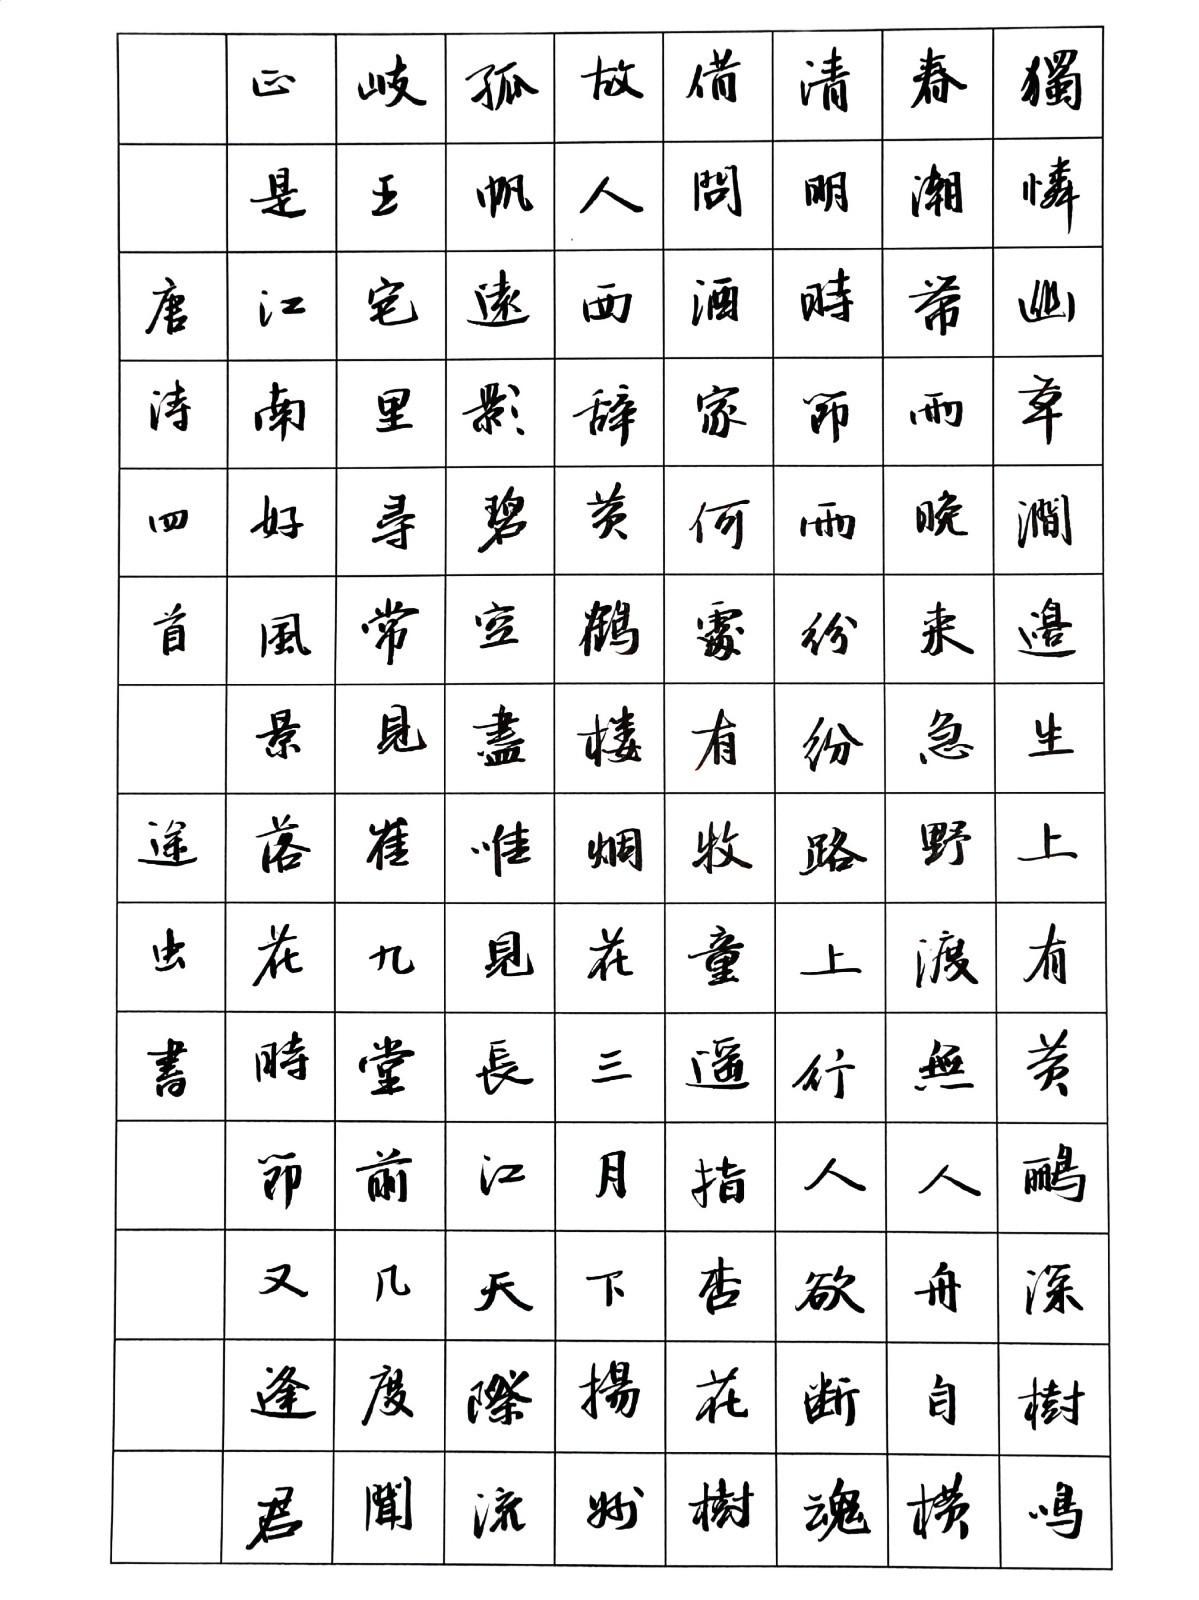 獨憐幽草澗邊生上有黄鹂深樹鳴
春潮帶雨晚来急野渡無人舟自横
清明時節雨紛紛路上行人欲断魂
借問酒家何處有牧童遥指杏花樹
故人西辞黄鶴楼烟花三月下揚州
孤帆遠影碧空盡唯見長江天際流
岐王宅里尋常見崔九堂前几度聞
正是江南好風景落花時節又逢君
唐詩四首 途虫書